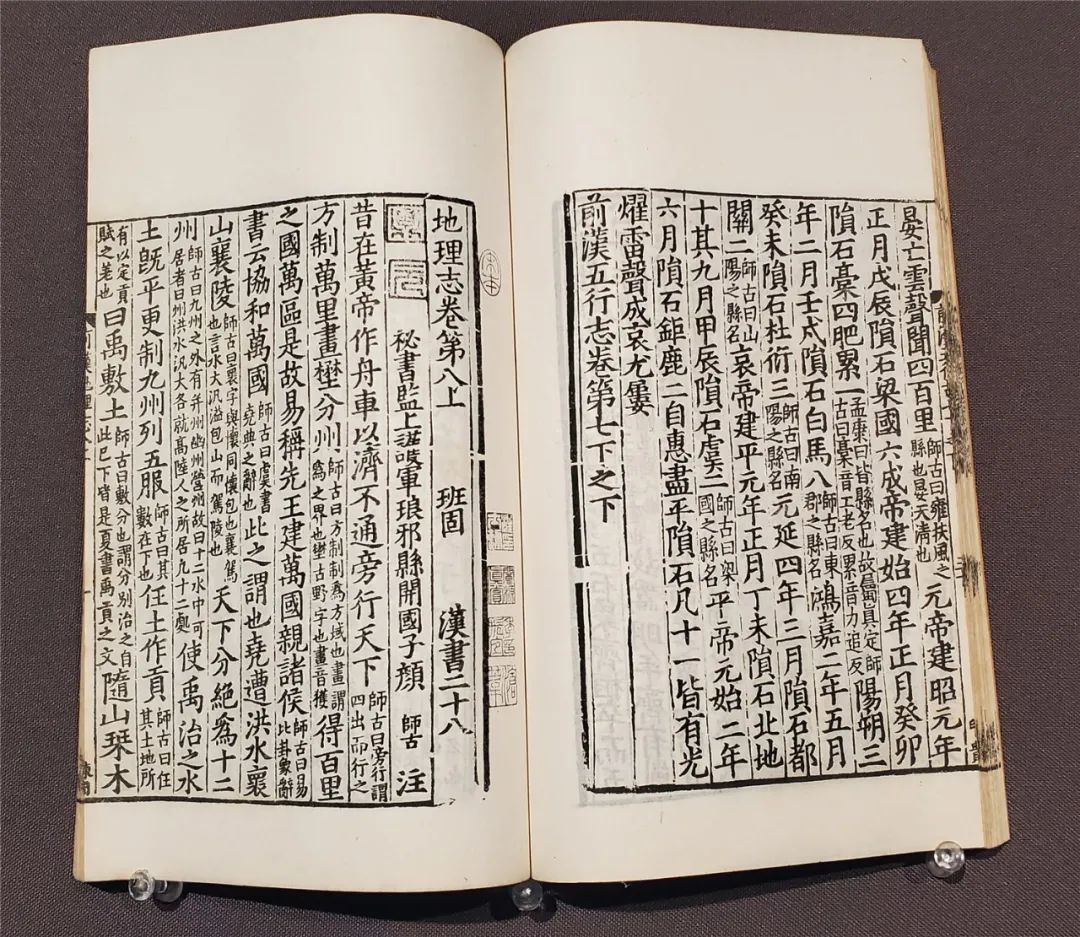 晏亡雲聲聞四百里師古曰雍扶風之縣也晏天清也元帝建昭元年
正月戊辰隕石梁國六成帝建始四年正月癸卯
隕石槀四肥累一孟康曰皆縣名也故屬真定師古曰槀音工老反累音力追反陽朔三
年二月壬戌隕石白馬八師古曰東郡之縣名鴻嘉二年五月
癸未隕石杜衍三師古曰南陽之縣名元延四年三月隕石都
關二師古曰山陽之縣名哀帝建平元年正月丁未隕石北地
十其九月甲辰隕石虞二師古曰梁國之縣名平帝元始二年
六月隕石鉅鹿二自惠盡平隕石凡十一皆有光
燿雷聲成哀尤屢
前漢五行志卷第七下之下
地理志卷第八上 班固 漢書二十八
秘書監上護軍琅邪縣開國子顏 師古 注
昔在黃帝作舟車以濟不通旁行天下師古曰旁行謂四出而行之
方制萬里畫壄分州師古曰方制制為方域也畫謂為之界也壄古野字也畫音獲得百里
之國萬區是故易稱先王建萬國親諸侯師古曰易比卦象辭
書云協和萬國師古曰虞書堯典之辭也此之謂也堯遭洪水襄
山襄陵師古曰襄字與懷同懷包也襄駕也言水大汎溢包山而駕陵也天下分絕為十二
州師古曰九州之外有并州幽州營州故曰十二水中可居者曰州洪水汎大各就高陸人之所居凡十二處使禹治之水
土既平更制九州列五服師古曰其數在下也任土作貢師古曰任其土地所
有以定貢賦之差也曰禹敷土師古曰敷分也謂分別治之自此已下皆是夏書禹貢之文隨山栞木